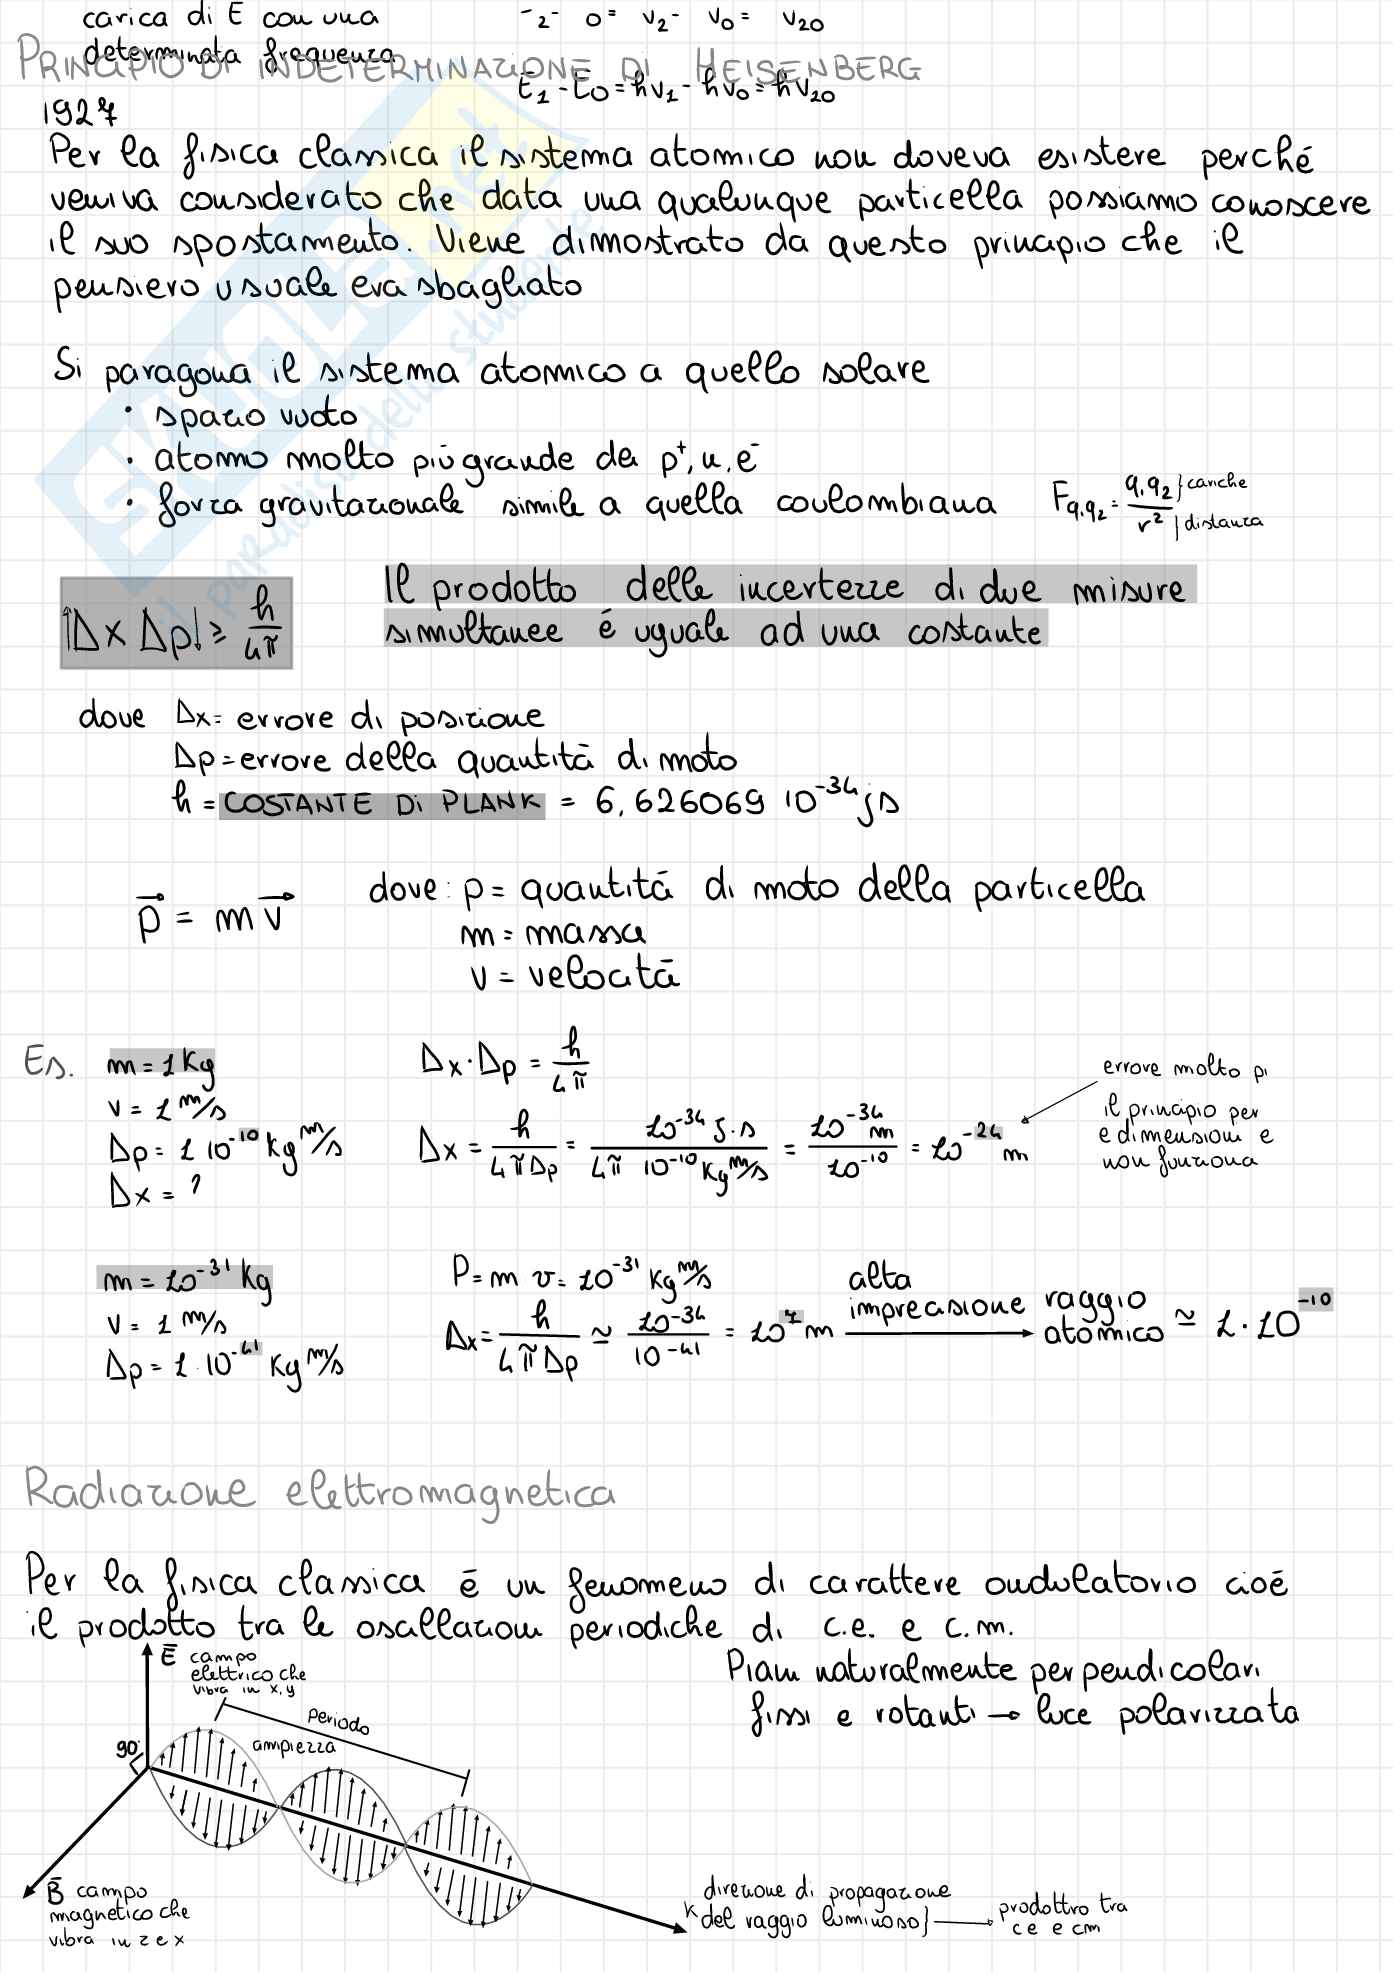 carica di E con una
determinata frequenza
PRINCIPIO DI INDETERMINAZIONE DI HEISENBERG
E₁ - E₀ = hν₁ - hν₀ = hν₂₀
1927
Per la fisica classica il sistema atomico non doveva esistere perché
veniva considerato che data una qualunque particella possiamo conoscere
il suo spostamento. Viene dimostrato da questo principio che il
pensiero usuale era sbagliato
Si paragona il sistema atomico a quello solare
• spazio vuoto
• atomo molto più grande dei p⁺, n, e⁻
• forza gravitazionale simile a quella coulombiana F q₁q₂ = q₁q₂ / r² } cariche } distanza
↑Δx Δp↓ ≥ h / 4π
Il prodotto delle incertezze di due misure
simultanee é uguale ad una costante
dove Δx = errore di posizione
Δp = errore della quantità di moto
h = COSTANTE DI PLANK = 6,626069 10⁻³⁴ js
p⃗ = m v⃗ dove: p = quantità di moto della particella
m = massa
v = velocità
Es. m = 1 Kg Δx · Δp = h / 4π
v = 1 m/s
Δp = 1 10⁻¹⁰ Kg m/s Δx = h / 4πΔp = 10⁻³⁴ J·s / 4π 10⁻¹⁰ Kg m/s = 10⁻³⁴ m / 10⁻¹⁰ = 10⁻²⁴ m
Δx = ?
errore molto pi
il principio per
e dimensioni e
non funziona
m = 10⁻³¹ Kg P = m v = 10⁻³¹ Kg m/s
v = 1 m/s
Δp = 1 · 10⁻⁴¹ Kg m/s Δx = h / 4πΔp ≃ 10⁻³⁴ / 10⁻⁴¹ = 10⁷ m
alta
imprecisione → raggio
atomico ≃ 1 · 10⁻¹⁰
Radiazione elettromagnetica
Per la fisica classica é un fenomeno di carattere ondulatorio cioé
il prodotto tra le oscillazioni periodiche di c.e. e c.m.
Piani naturalmente perpendicolari
fissi e rotanti → luce polarizzata
E̅ campo
elettrico che
vibra in x, y
Periodo
ampiezza
90°
B̅ campo
magnetico che
vibra in z e x
K direzione di propagazione
del raggio luminoso } → prodottro tra
ce e cm
SKUOLA.net
il paradiso dello studente